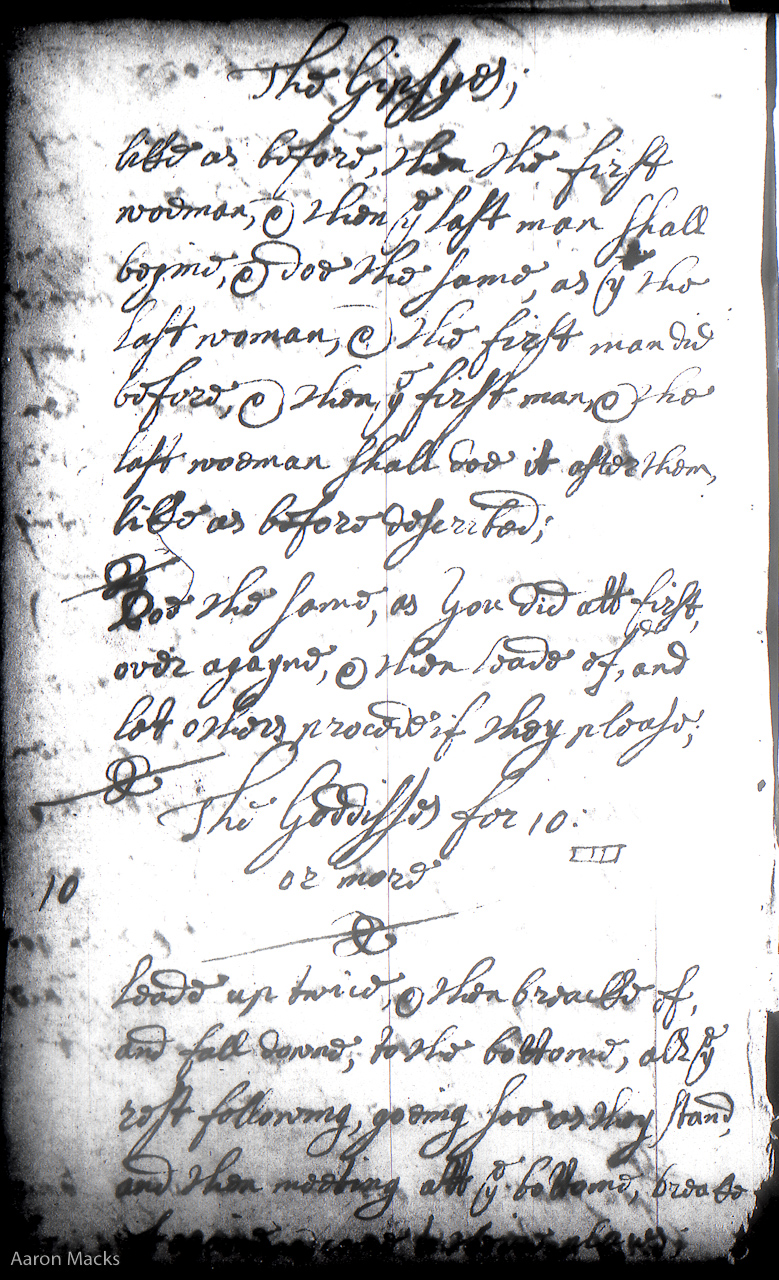 The Gipsyes;
likke as before, then the first
woeman, & then ye last man shall
begine, & doe the same, as ye the
last woman, & the first man did
before, & then ye first man, & the
last woeman shall doe it after them,
likke as before described;
Doe the same, as you did att first,
over agayne, & then leade of, and
let others procede if they please;
The Goddisses for 10:
or more
10
leade up twice, & then breacke of,
and fall downe, to the bottome, all ye
rest following, goeing soe as they stand,
and then meeting att ye bottome, breake
places;
Aaron Macks